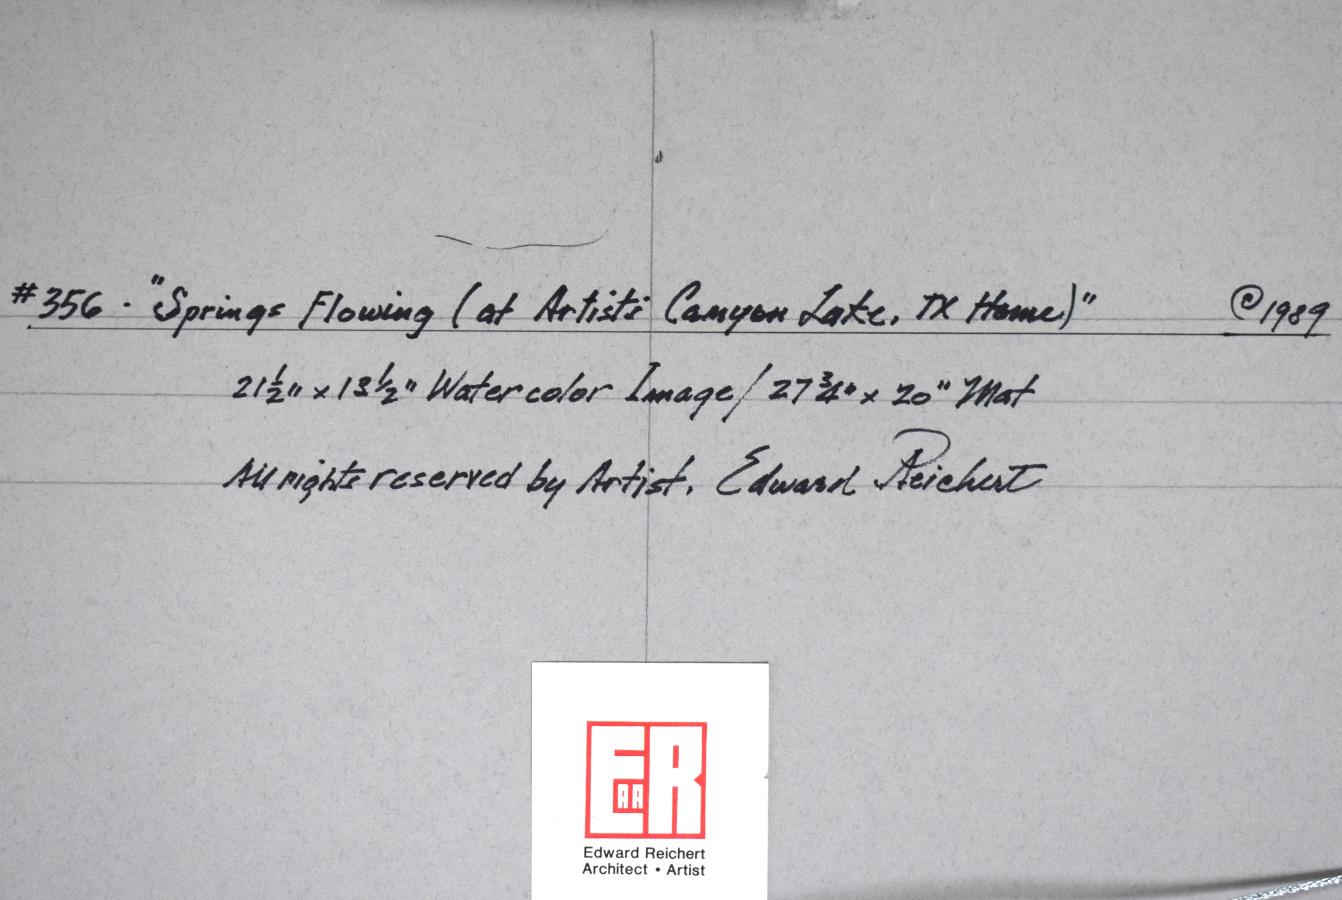 #356 · "Springs Flowing (at Artist's Canyon Lake, TX Home)" ©1989
21½" x 13½" Watercolor Image / 27¾" x 20" Mat
All rights reserved by Artist. Edward Reichert
ER
AA
Edward Reichert
Architect • Artist